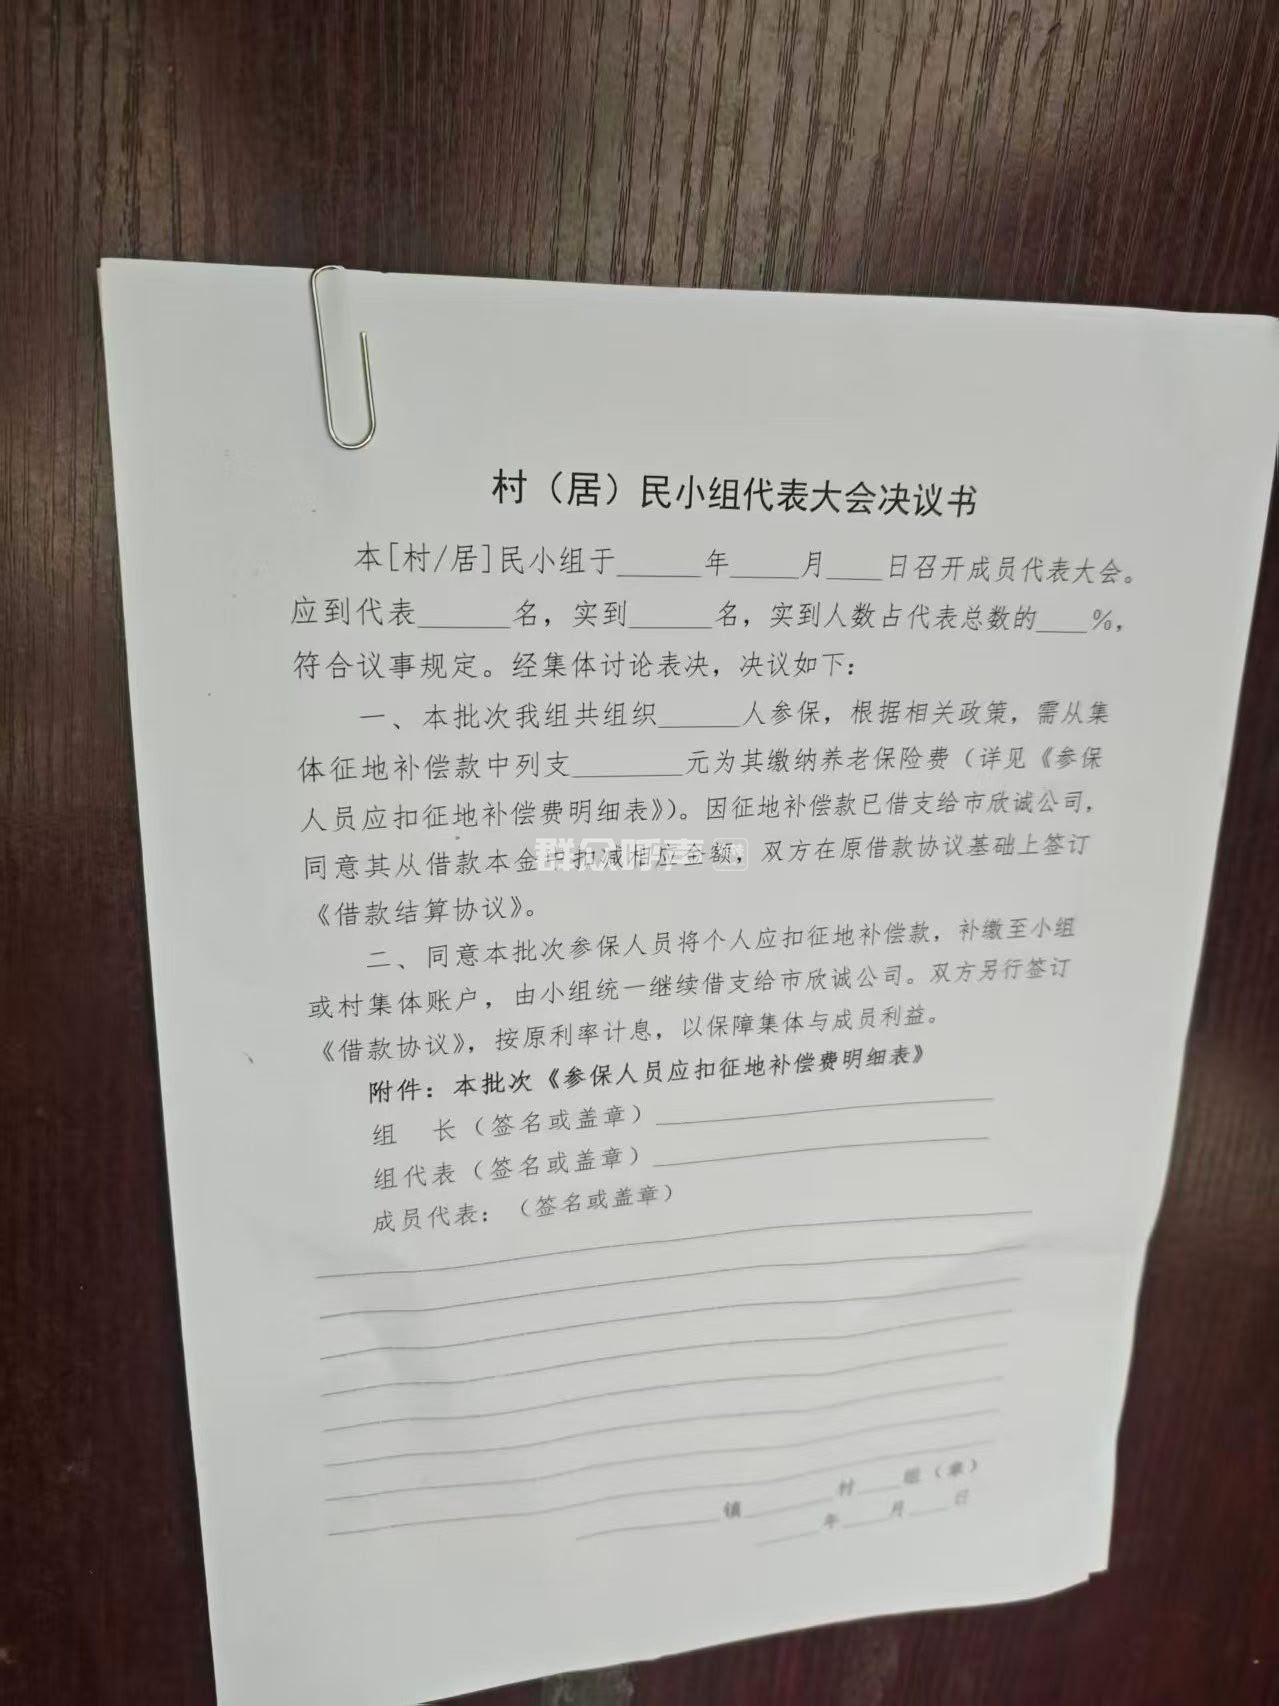 村（居）民小组代表大会决议书
本[村/居]民小组于______年_____月____日召开成员代表大会。
应到代表______名，实到______名，实到人数占代表总数的____%，
符合议事规定。经集体讨论表决，决议如下：
一、本批次我组共组织______人参保，根据相关政策，需从集
体征地补偿款中列支________元为其缴纳养老保险费（详见《参保
人员应扣征地补偿费明细表》）。因征地补偿款已借支给市欣诚公司，
同意其从借款本金中扣减相应金额，双方在原借款协议基础上签订
《借款结算协议》。
二、同意本批次参保人员将个人应扣征地补偿款，补缴至小组
或村集体账户，由小组统一继续借支给市欣诚公司。双方另行签订
《借款协议》，按原利率计息，以保障集体与成员利益。
附件：本批次《参保人员应扣征地补偿费明细表》
组　长（签名或盖章）
组代表（签名或盖章）
成员代表：（签名或盖章）
__________镇______村___组（章）
_____年____月____日
群众呼声